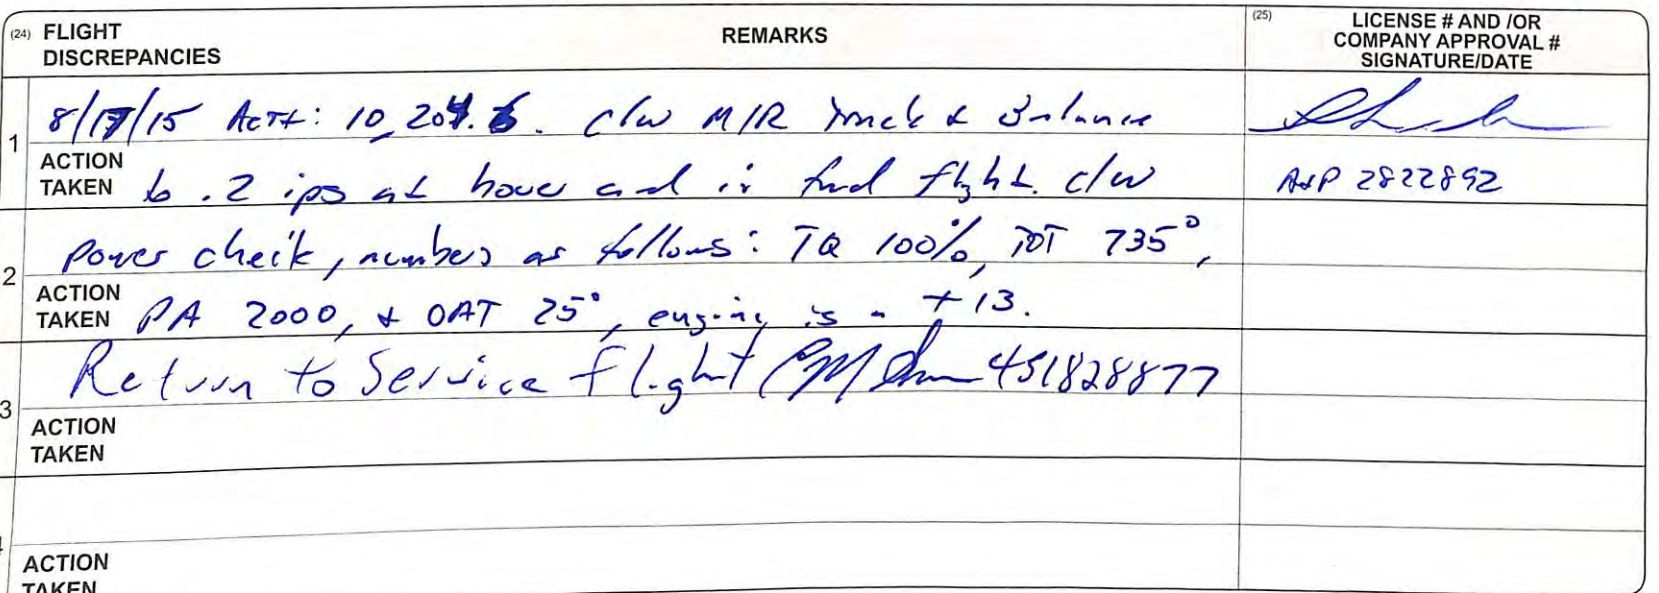 (24) FLIGHT DISCREPANCIES REMARKS (25) LICENSE # AND /OR COMPANY APPROVAL # SIGNATURE/DATE
1 8/17/15 ACTT: 10,204.6. c/w M/R track & Balance
ACTION TAKEN to .2 ips at hover and in fwd flight. c/w A&P 2822892
2 power check, numbers as follows: TQ 100%, TOT 735°,
ACTION TAKEN PA 2000, & OAT 25°, engine is a +13.
3 Return to Service flight 451828877
ACTION TAKEN
4
ACTION TAKEN